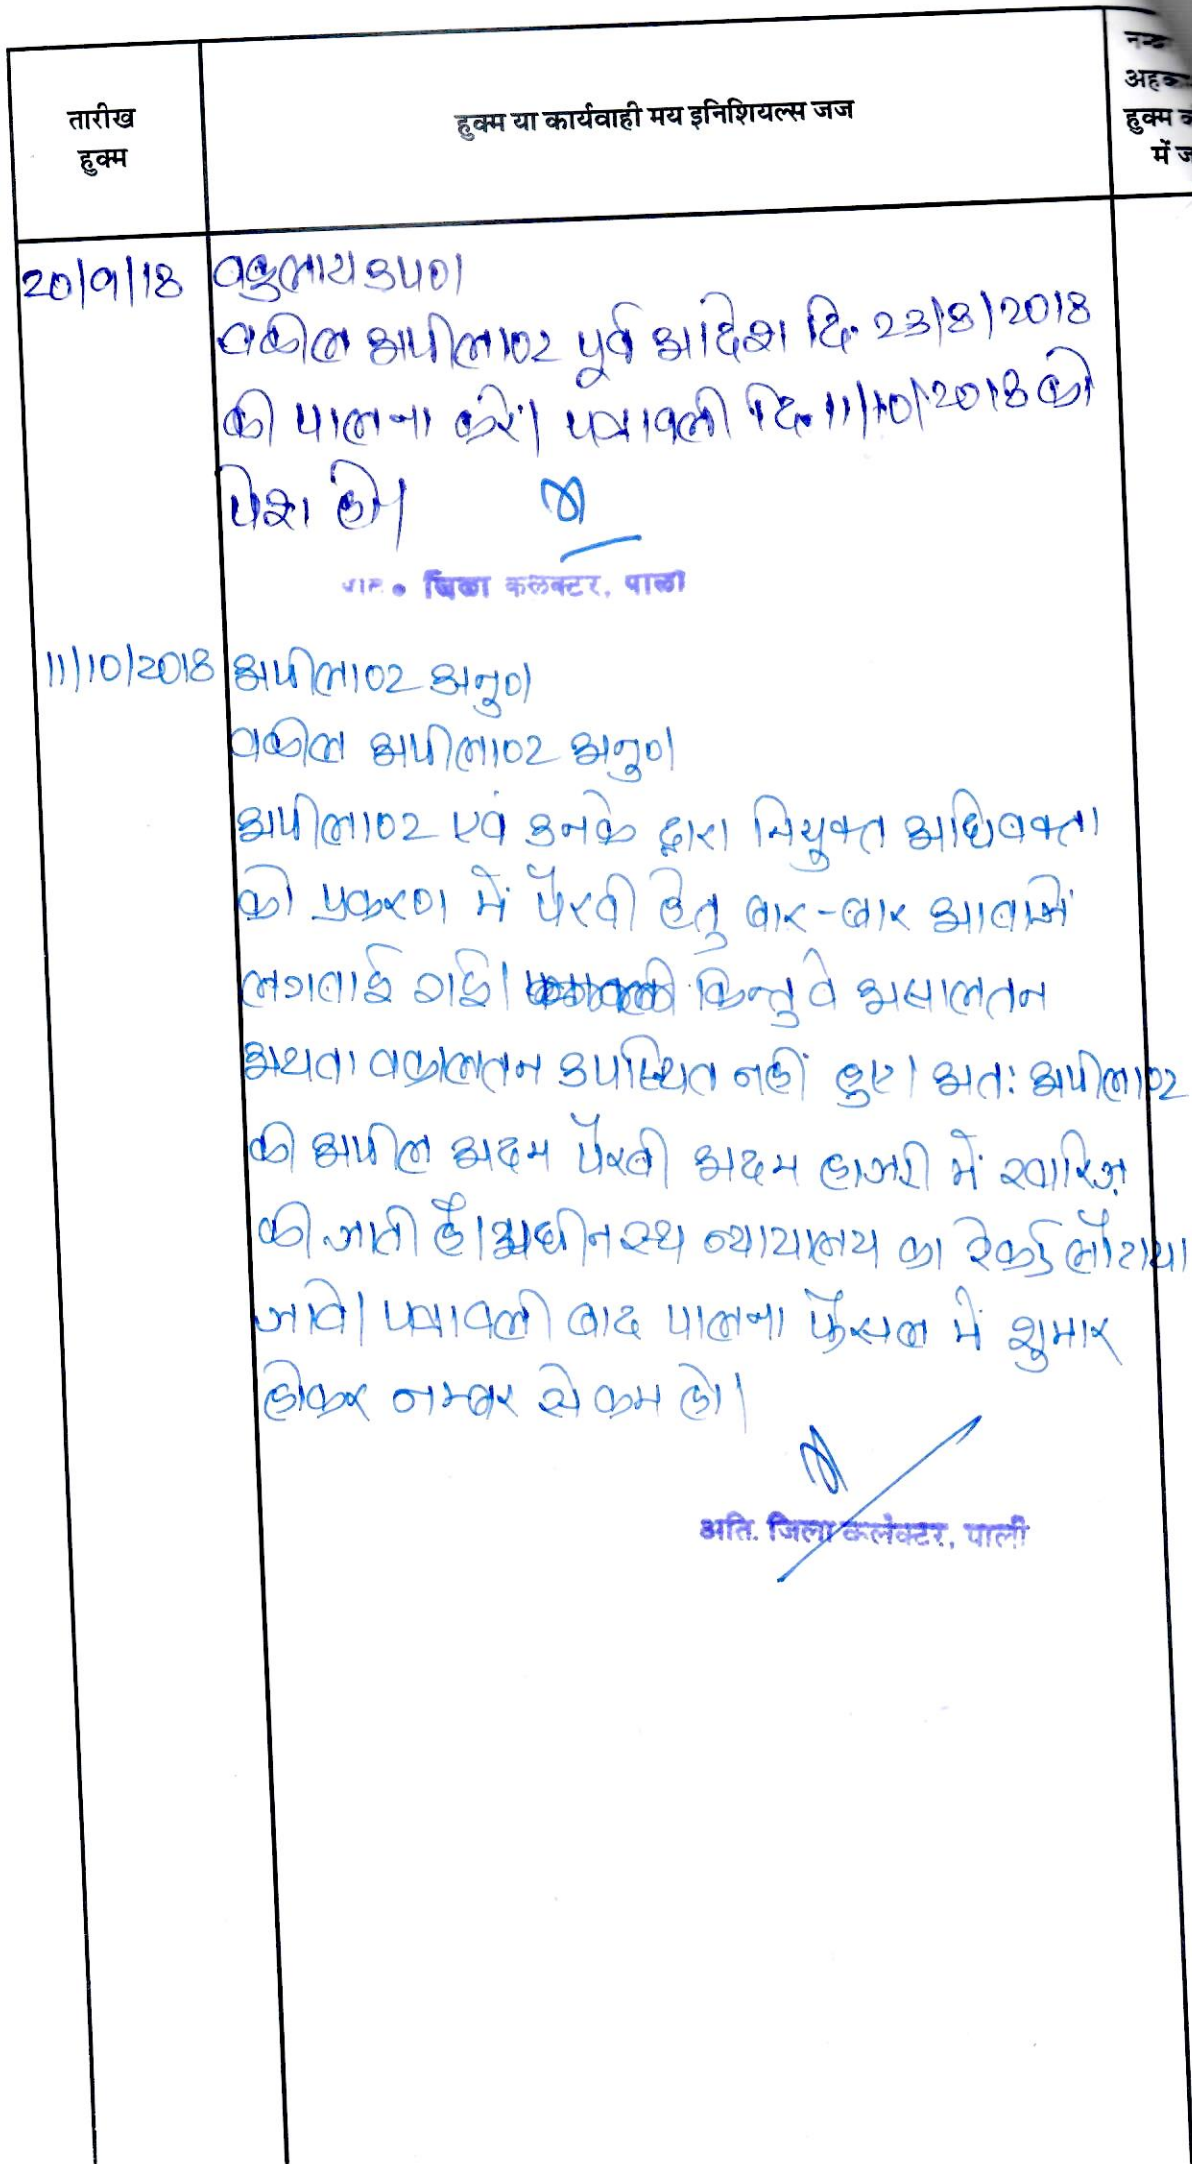 तारीख
हुक्म
हुक्म या कार्यवाही मय इनिशियल्स जज
हुक्म
में
20/9/18 वकुलाय उप०।
वकील अपीलाण्ट पूर्व आदेश दि. 23/8/2018
की पालना करें। पत्रावली दि. 11/10/2018 को
पेश हो।
जिला कलक्टर, पाली
11/10/2018 अपीलाण्ट अनु०।
वकील अपीलाण्ट अनु०।
अपीलाण्ट एवं उनके द्वारा नियुक्त अधिवक्ता
को प्रकरण में पैरवी हेतु बार-बार आवाजें
लगवाई गई। किन्तु वे असालतन
अथवा वकालतन उपस्थित नहीं हुए। अतः अपीलाण्ट
की अपील अदम पैरवी अदम हाजरी में खारिज़
की जाती है। अधीनस्थ न्यायालय का रेकर्ड लौटाया
जावे। पत्रावली बाद पालना फैसल में शुमार
होकर नम्बर से कम हो।
अति. जिला कलेक्टर, पाली